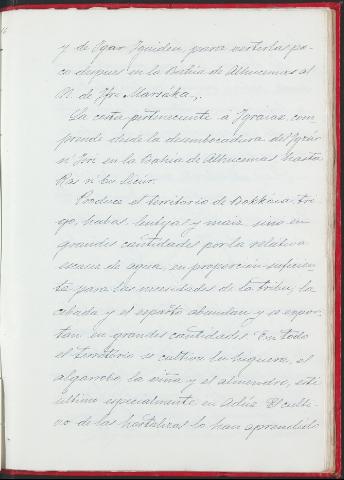 y de Igar Iguiden, para verterlas po-
co despues en la Bahia de Alhucemas al
N. de Ifri Marsáka,.
La costa perteneciente á Igraiar, com-
prende desde la desembocadura del Igsir
n' Ifri en la Bahia de Alhucemas hasta
Ras n' bu
Produce el territorio de Bokkóia tri-
go, habas, lentejas y maiz, sino en
grandes cantidades por la relativa
escasez de agua, en proporción suficien-
te para las necesidades de la tribu; la
cebada y el esparto abundan y se expor-
tan en grandes cantidades. En todo
el territorio se cultiva la higuera, el
algarrobo la viña y el almendro, este
último especialmente en Adúz. El culti-
vo de las hortalizas lo han aprendido